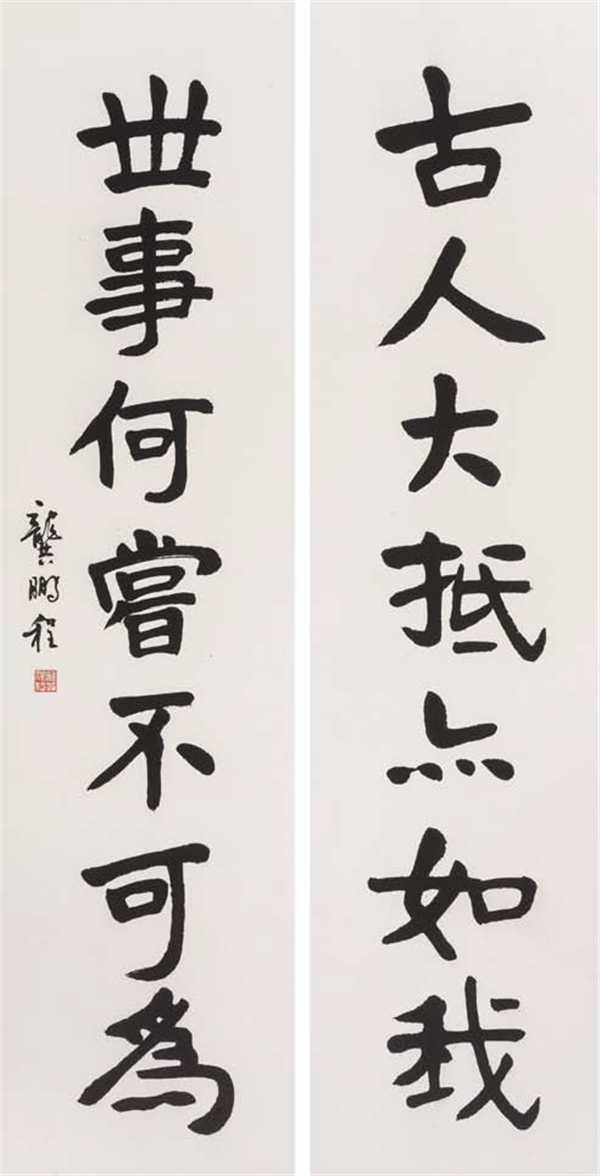 古人大抵亦如我
世事何嘗不可為
龔鵬程